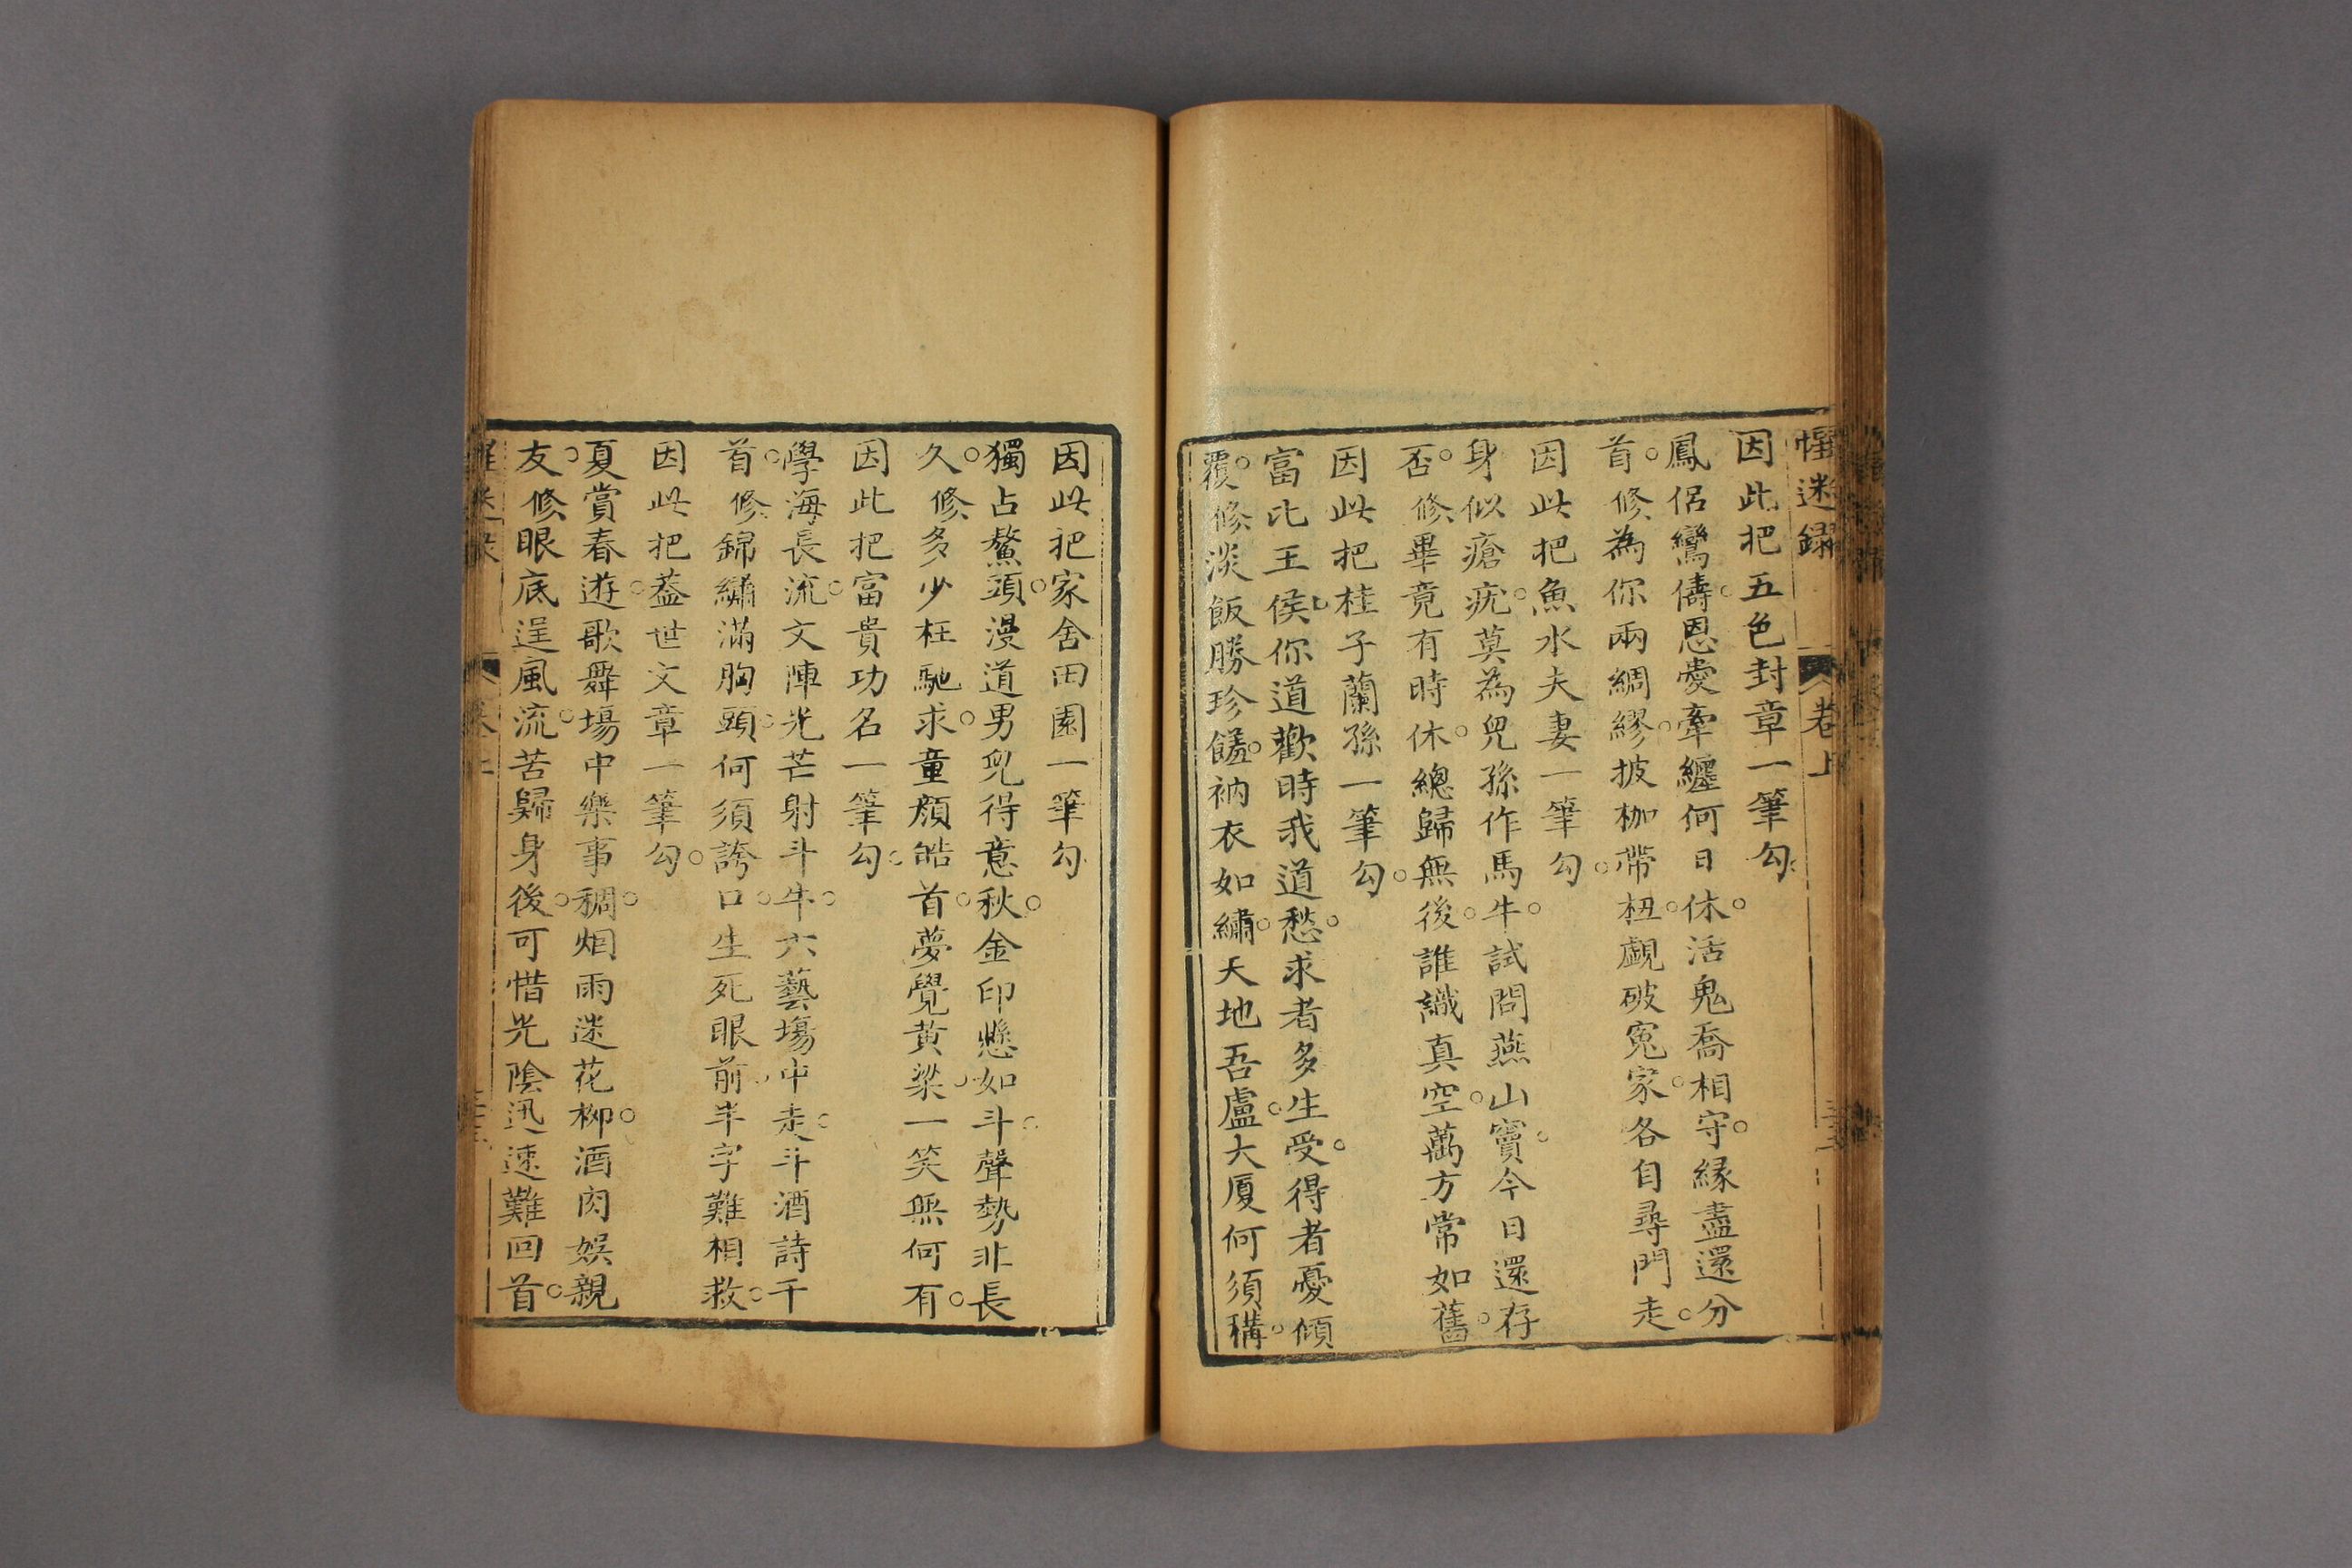 惺迷錄 卷上
因此把五色封章一筆勾
鳳侶鸞儔恩愛牽纏何日休活鬼喬相守縁盡還分
首修為你兩綢繆披枷帶杻覷破冤家各自尋門走
因此把魚水夫妻一筆勾
身似瘡疣莫為兒孫作馬牛試問燕山竇今日還存
否修畢竟有時休總歸無後誰識真空萬方常如舊
因此把桂子蘭孫一筆勾
富比王侯你道歡時我道愁求者多生受得者憂傾
覆修淡飯勝珍饈衲衣如繡天地吾廬大厦何須構
因此把家舍田園一筆勾
獨占鰲頭漫道男兒得意秋金印懸如斗聲勢非長
久修多少枉馳求童顏皓首夢覺黃粱一笑無何有
因此把富貴功名一筆勾
學海長流文陣光芒射斗牛六藝塲中走斗酒詩千
首修錦繡滿胸頭何須誇口生死眼前半字難相救
因此把葢世文章一筆勾
夏賞春遊歌舞塲中樂事稠烟雨迷花柳酒肉娱親
友修眼底逞風流苦歸身後可惜光陰迅速難回首